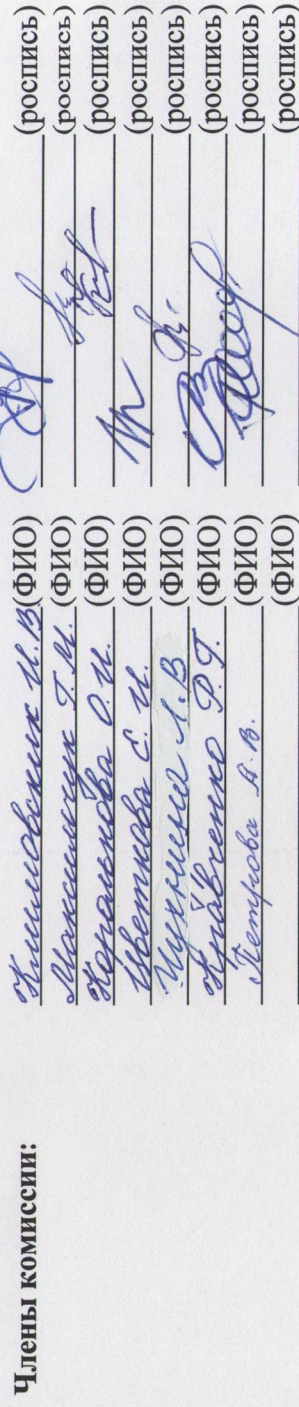 Члены комиссии: Климовских И.В. (ФИО) (роспись)
Максимчук Т.М. (ФИО) (роспись)
Коралькова О.И. (ФИО) (роспись)
Цветкова Е.И. (ФИО) (роспись)
Мухина Л.В (ФИО) (роспись)
Кравченко Р.Г. (ФИО) (роспись)
Петрова А.В. (ФИО) (роспись)
(ФИО) (роспись)